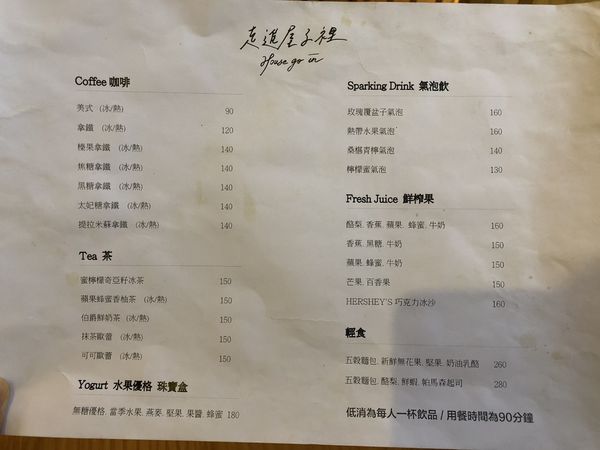 走進屋子裡
House go in
Coffee 咖啡
美式 (冰/熱) 90
拿鐵 (冰/熱) 120
榛果拿鐵 (冰/熱) 140
焦糖拿鐵 (冰/熱) 140
黑糖拿鐵 (冰/熱) 140
太妃糖拿鐵 (冰/熱) 140
提拉米蘇拿鐵 (冰/熱) 140
Tea 茶
蜜檸檬奇亞籽冰茶 150
蘋果蜂蜜香柚茶 (冰/熱) 150
伯爵鮮奶茶 (冰/熱) 150
抹茶歐蕾 (冰/熱) 150
可可歐蕾 (冰/熱) 150
Yogurt 水果優格 珠寶盒
無糖優格.當季水果.燕麥.堅果.果醬.蜂蜜 180
Sparking Drink 氣泡飲
玫瑰覆盆子氣泡 160
熱帶水果氣泡 160
桑椹青檸氣泡 140
檸檬蜜氣泡 130
Fresh Juice 鮮榨果
酪梨.香蕉.蘋果.蜂蜜.牛奶 160
香蕉.黑糖.牛奶 150
蘋果.蜂蜜.牛奶 150
芒果.百香果 150
HERSHEY'S 巧克力冰沙 160
輕食
五穀麵包.新鮮無花果.堅果.奶油乳酪 260
五穀麵包.酪梨.鮮蝦.帕馬森起司 280
低消為每人一杯飲品 / 用餐時間為90分鐘